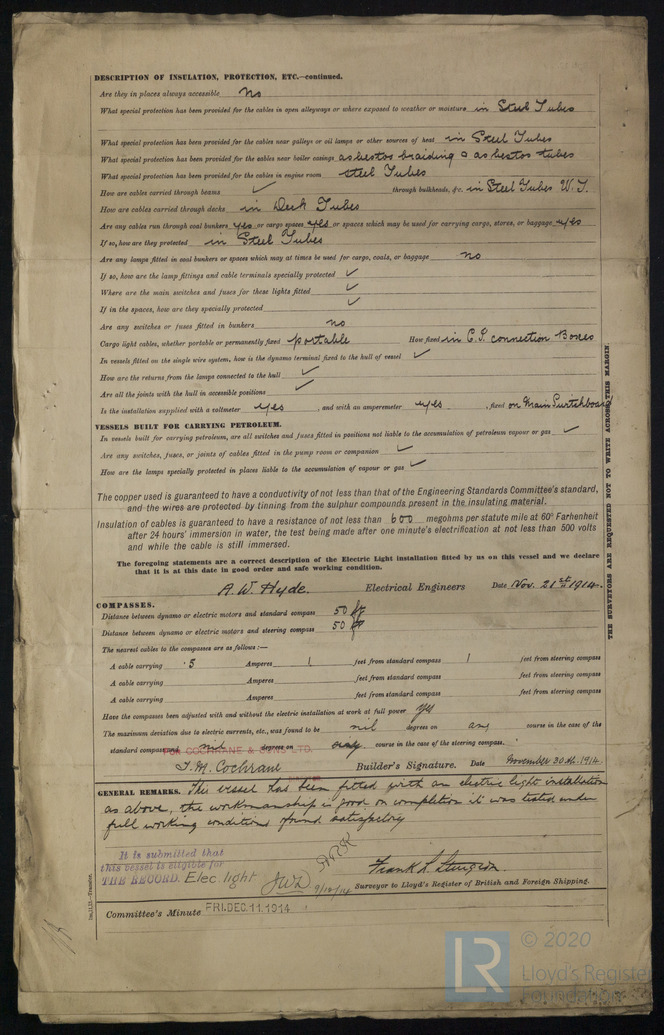 DESCRIPTION OF INSULATION, PROTECTION, ETC.—continued.
Are they in places always accessible No
What special protection has been provided for the cables in open alleyways or where exposed to weather or moisture in Steel Tubes
What special protection has been provided for the cables near galleys or oil lamps or other sources of heat in Steel Tubes
What special protection has been provided for the cables near boiler casings asbestos braiding & asbestos tubes
What special protection has been provided for the cables in engine room Steel Tubes
How are cables carried through beams ✓ through bulkheads, &c. in Steel Tubes W.T.
How are cables carried through decks in Deck Tubes
Are any cables run through coal bunkers yes or cargo spaces yes or spaces which may be used for carrying cargo, stores, or baggage yes
If so, how are they protected in Steel Tubes
Are any lamps fitted in coal bunkers or spaces which may at times be used for cargo, coals, or baggage no
If so, how are the lamp fittings and cable terminals specially protected ✓
Where are the main switches and fuses for these lights fitted ✓
If in the spaces, how are they specially protected ✓
Are any switches or fuses fitted in bunkers no
Cargo light cables, whether portable or permanently fixed portable How fixed in C.I. connection Boxes
In vessels fitted on the single wire system, how is the dynamo terminal fixed to the hull of vessel ✓
How are the returns from the lamps connected to the hull ✓
Are all the joints with the hull in accessible positions ✓
Is the installation supplied with a voltmeter yes , and with an amperemeter yes , fixed on Main Switchboard
VESSELS BUILT FOR CARRYING PETROLEUM.
In vessels built for carrying petroleum, are all switches and fuses fitted in positions not liable to the accumulation of petroleum vapour or gas ✓
Are any switches, fuses, or joints of cables fitted in the pump room or companion ✓
How are the lamps specially protected in places liable to the accumulation of vapour or gas ✓
The copper used is guaranteed to have a conductivity of not less than that of the Engineering Standards Committee's standard,
and the wires are protected by tinning from the sulphur compounds present in the insulating material.
Insulation of cables is guaranteed to have a resistance of not less than 600 megohms per statute mile at 60° Farhenheit
after 24 hours' immersion in water, the test being made after one minute's electrification at not less than 500 volts
and while the cable is still immersed.
The foregoing statements are a correct description of the Electric Light installation fitted by us on this vessel and we declare
that it is at this date in good order and safe working condition.
A. W. Hyde. Electrical Engineers Date Nov. 21st 1914.
COMPASSES.
Distance between dynamo or electric motors and standard compass 50 ft
Distance between dynamo or electric motors and steering compass 50 ft
The nearest cables to the compasses are as follows:—
A cable carrying .5 Amperes 1 feet from standard compass 1 feet from steering compass
A cable carrying Amperes feet from standard compass feet from steering compass
A cable carrying Amperes feet from standard compass feet from steering compass
Have the compasses been adjusted with and without the electric installation at work at full power Yes
The maximum deviation due to electric currents, etc., was found to be nil degrees on any course in the case of the
standard compass and nil degrees on any course in the case of the steering compass.
FOR COCHRANE & SONS LTD.
T. M. Cochrane Builder's Signature. Date November 30th 1914.
GENERAL REMARKS. This vessel has been fitted with an electric light installation
as above, the workmanship is good on completion it was tested under
full working conditions found satisfactory
It is submitted that
this vessel is eligible for
THE RECORD. Elec. light JWD 9/12/14
Frank L. Sturgeon
Surveyor to Lloyd's Register of British and Foreign Shipping.
Committee's Minute FRI. DEC. 11. 1914
THE SURVEYORS ARE REQUESTED NOT TO WRITE ACROSS THIS MARGIN.
LR © 2020
Lloyd's Register
Foundation